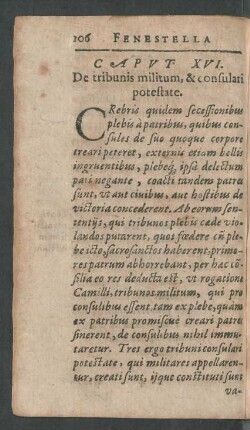 106 FENESTELLA
CAPVT XVI.
De tribunis militum, & consulari
potestate.
CRebris quidem secessionibus
plebis à patribus, quibus con-
sules de suo quoque corpore
creari peteret, externis etiam bellis
ingruentibus, plebeq́; ipsa delectum
pati negante, coacti tandem patres
sunt, vt aut ciuibus, aut hostibus de
victoria concederent. Ab eorum sen-
tentijs, qui tribunos plebis cæde vio-
landos putarent, quos fœdere cũ ple-
be icto, sacrosanctos haberent, primo-
res patrum abhorrebant, per hæc cõ-
silia eo res deducta est, vt rogationi
Camilli, tribunos militum, qui pro
consulibus essent, tam ex plebe, quàm
ex patribus promiscuè creari patres
sinerent, de consulibus nihil immu-
taretur. Tres ergo tribuni consulari
potestate, qui militares appellaren-
tur, creati sunt, ijque constituti sunt
va-